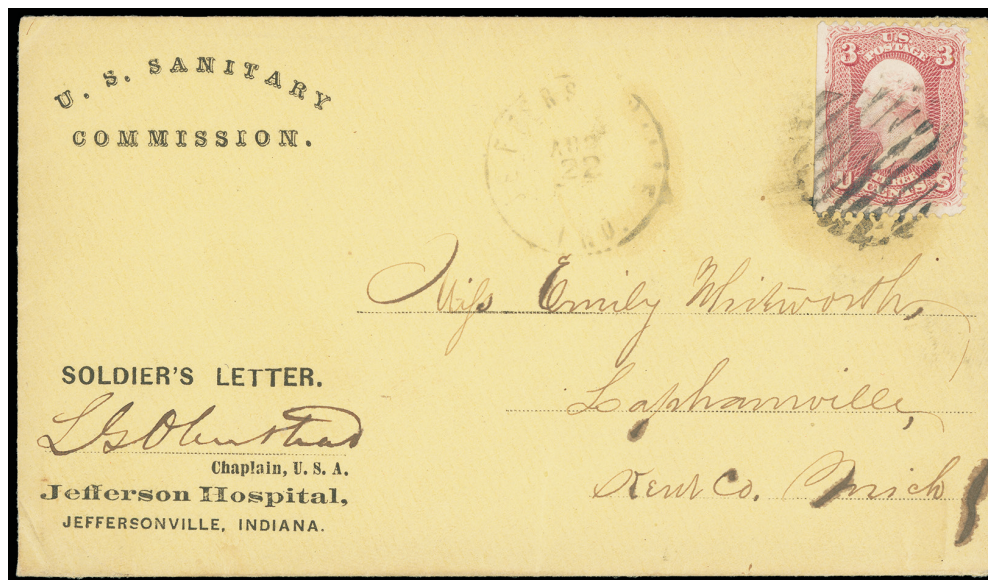 U. S. SANITARY
COMMISSION.
AUG
22
IND.
3 U.S. 3
POSTAGE
U THREE S
CENTS
Miss Emily Whitworth,
Laphamville,
Kent Co. Mich
SOLDIER'S LETTER.
L G Olmstead
Chaplain, U. S. A.
Jefferson Hospital,
JEFFERSONVILLE, INDIANA.